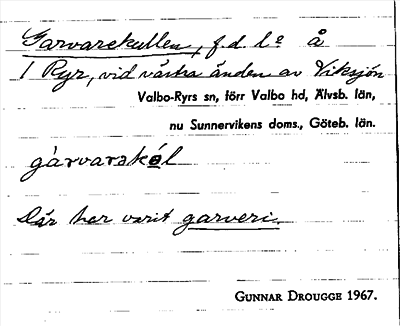 Garvarekullen, f.d. l:o å
1 Ryr, vid västra änden av Viksjön
Valbo-Ryrs sn, förr Valbo hd, Älvsb. län,
nu Sunnervikens doms., Göteb. län.
gàrvarakól
Där har varit garveri.
GUNNAR DROUGGE 1967.